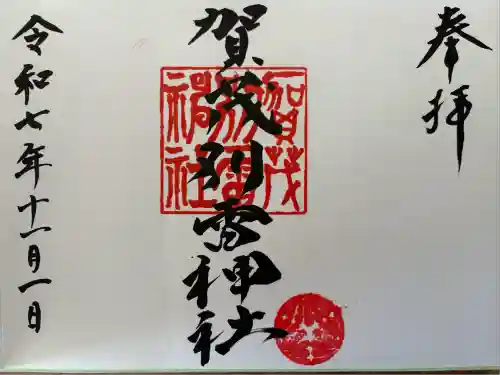 奉拝
賀茂別雷神社
賀茂別雷神社
令和七年十一月一日